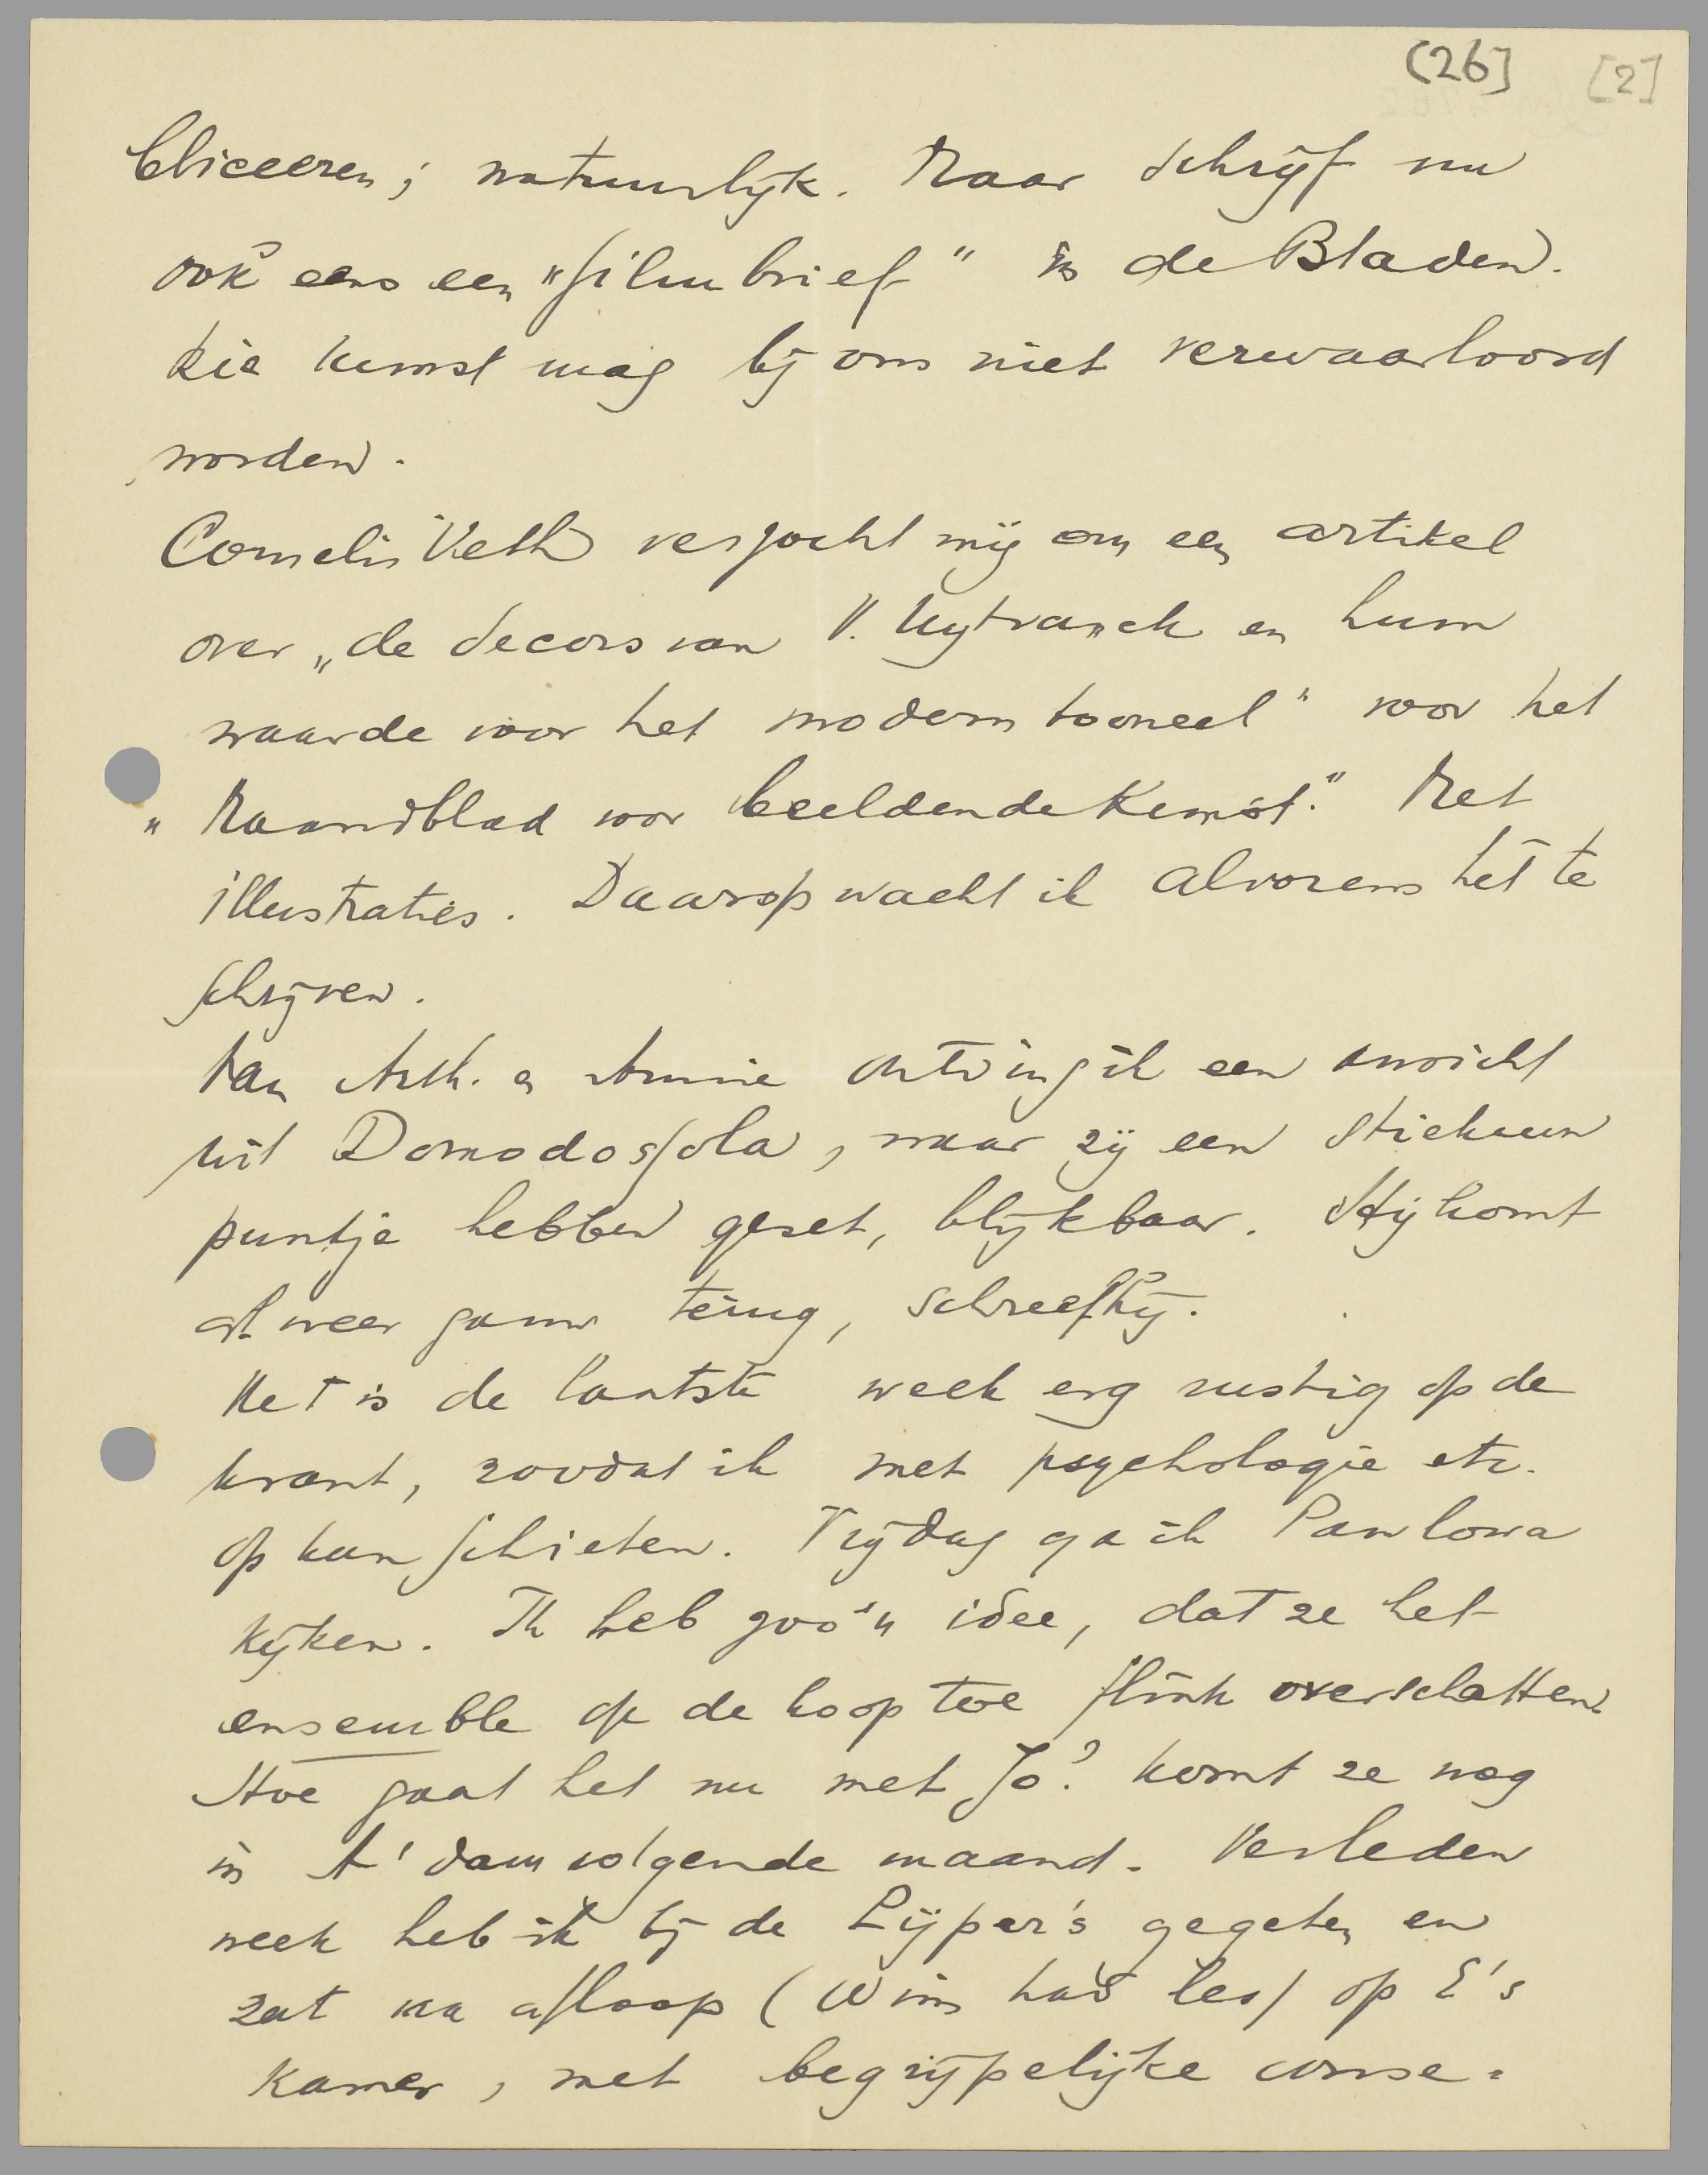 [26] [2]
bliceeren; natuurlijk. Maar schrijf nu
ook eens een „filmbrief" in de Bladen.
Die kunst mag bij ons niet verwaarloosd
worden.
Cornelis Veth verzocht mij om een artikel
over „de decors van V. Uytvanck en hun
waarde voor het modern tooneel" voor het
„Maandblad voor beeldende Kunst." Met
illustraties. Daarop wacht ik alvorens het te
schrijven.
Van Arth. en Annie ontving ik een ansicht
uit Domodossola, waar zij een stiekeum
puntje hebben gezet, blijkbaar. Hij komt
al weer gauw terug, schreef hij.
Het is de laatste week erg rustig op de
krant, zoodat ik met psychologie etc.
op kan schieten. Vrijdag ga ik Pawlowa
kijken. Ik heb zoo'n idee, dat ze het
ensemble op de koop toe flink overschatten.
Hoe gaat het nu met Jo? Komt ze nog
in A'dam volgende maand. Verleden
week heb ik bij de Pijper's gegeten en
zat na afloop (Wim had les) op E's
kamer, met begrijpelijke conse=